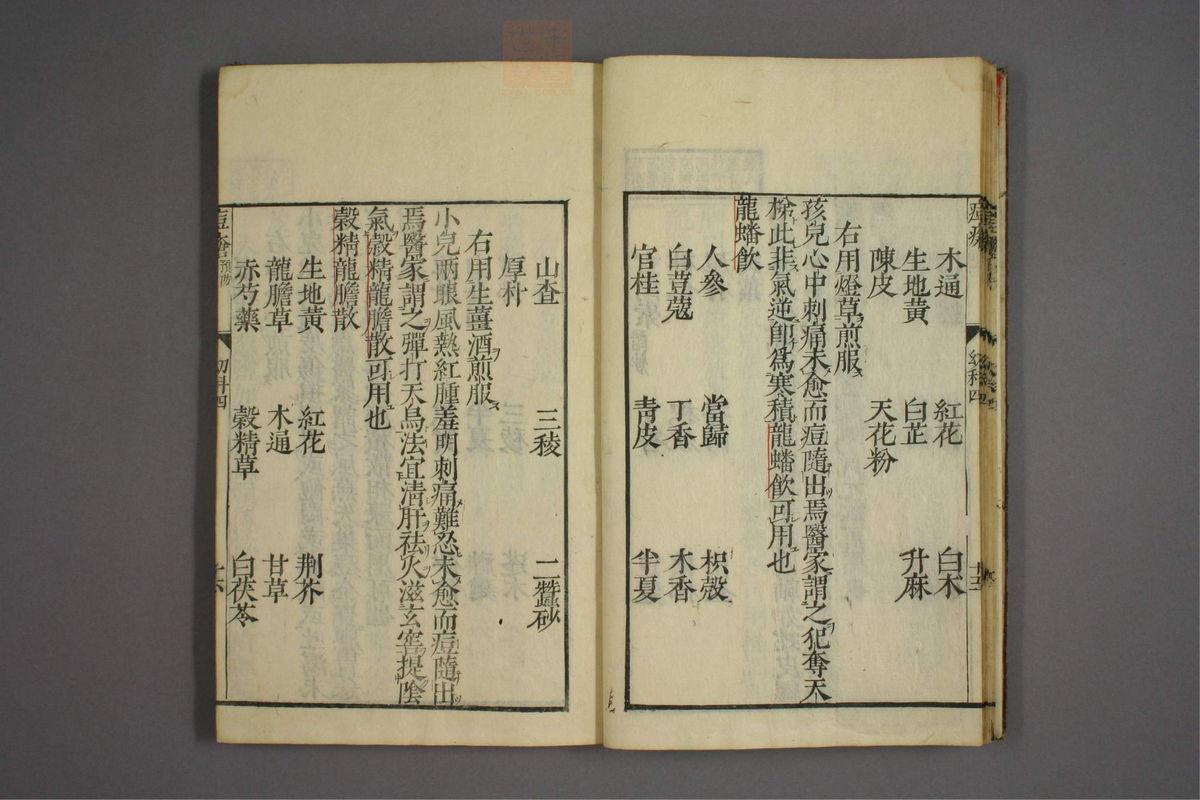 木通　紅花　白木
生地黃　白芷　升麻
陳皮　天花粉
右用燈草煎服
孩兒心中刺痛未愈而痘隨出焉醫家謂之犯奪天
條此非氣逆卽爲寒積龍蟠飮可用也
龍蟠飮
人參　當歸　枳殼
白荳蔻　丁香　木香
官桂　靑皮　半夏
山查　三稜　二蠶砂
厚朴
右用生薑酒煎服
小兒兩眼風熱紅腫羞明刺痛難忍未愈而痘隨出
焉醫家謂之彈打天鳥法宜淸肝祛火滋玄窖提陰
氣穀精龍膽散可用也
穀精龍膽散
生地黃　紅花　荆芥
龍膽草　木通　甘草
赤芍藥　穀精草　白茯苓